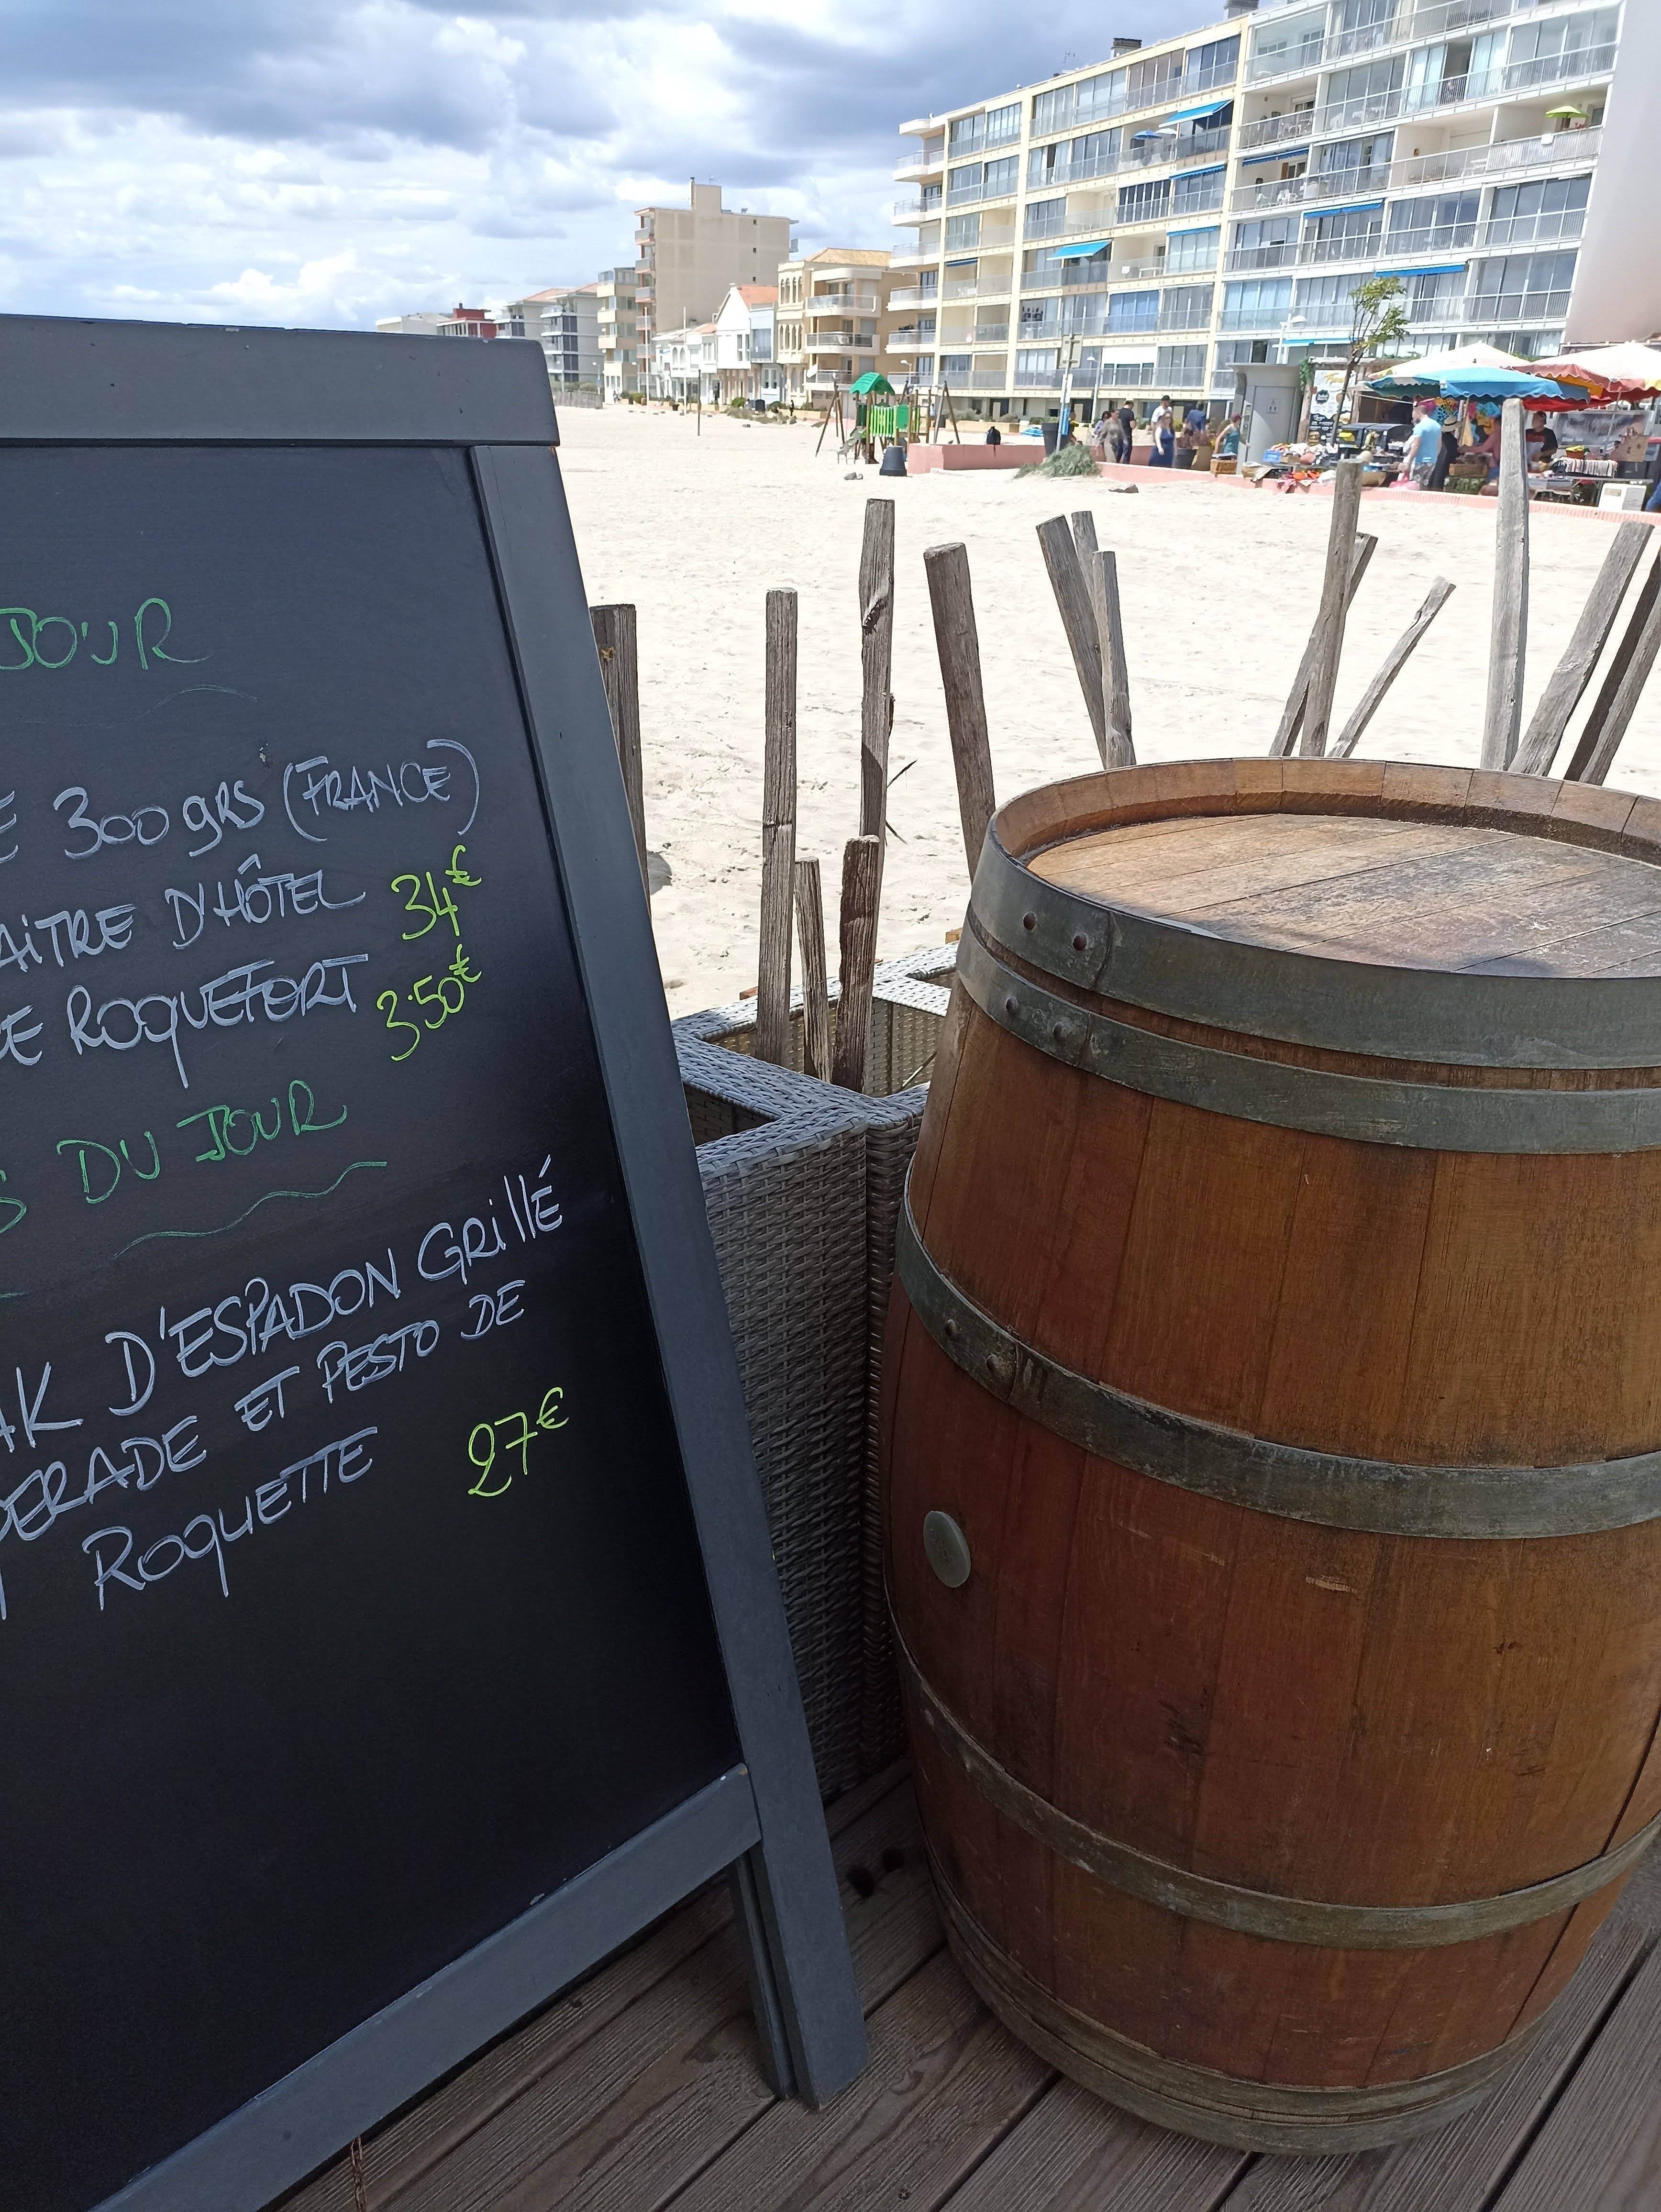 JOUR
300grs (FRANCE)
D'HÔTEL 34€
ROQUEFORT 3.50€
DU JOUR
D'ESPADON GRILLÉ
ET PESTO DE
ROQUETTE 27€